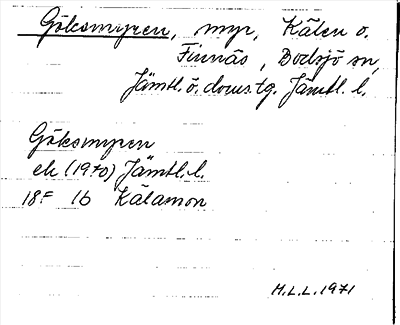 Göksmyren, myr, Kälen o.
Finnäs, Bodsjö sn,
Jämtl. ö. doms.tg. Jämtl. l.
Göksmyren
ek (1970) Jämtl. l.
18F 1b Kälamon
H.L.L. 1971